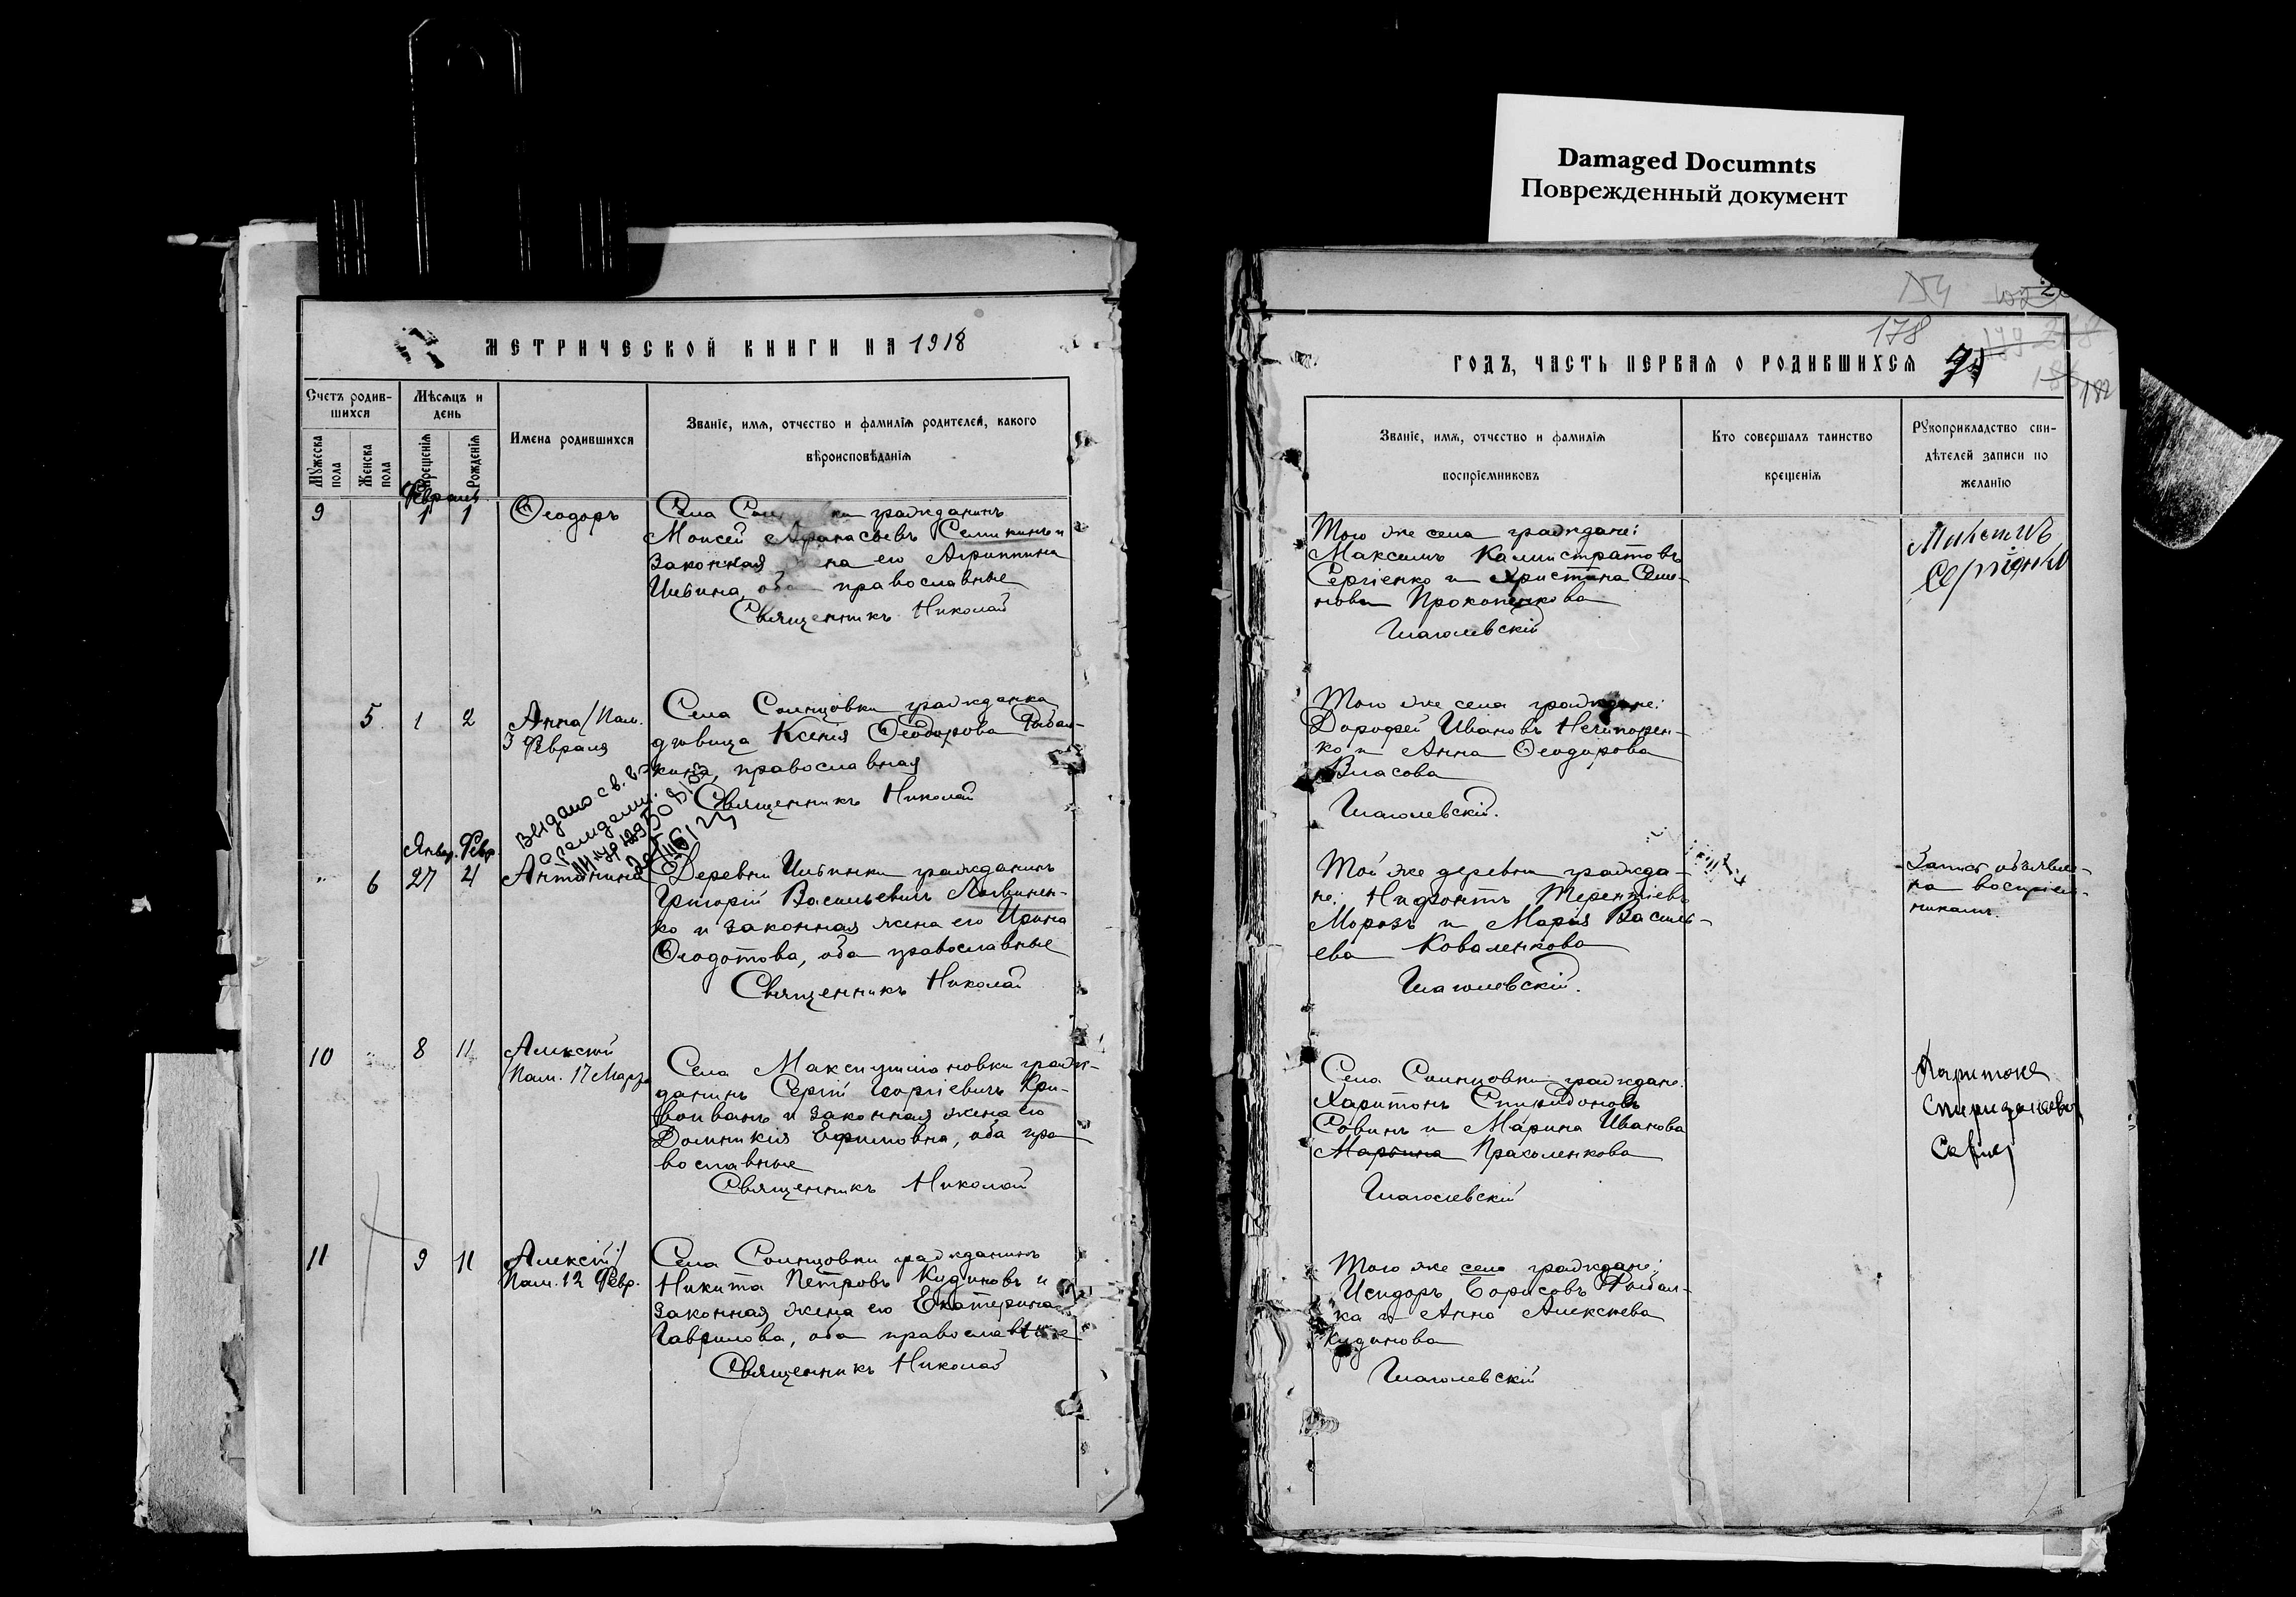 Damaged Documnts
Поврежденный документ
МЕТРИЧЕСКОЙ КНИГИ НА 1918
Счетъ родив-
шихся
Мѣсяцъ и
день
Мужеска
пола
Женска
пола
Крещенія
Рожденія
Имена родившихся
Званіе, имя, отчество и фамилія родителей, какого
вѣроисповѣданія
Февраля
9 1 1 Ѳеодоръ
Села гражданинъ
Моисей Аѳанасьевъ Семикинъ и
законная жена его Агриппина
православные
Священникъ Николай
5 1 2 Анна/Пам.
3 Февраля
Села Солнцовки гражданка
дѣвица Ксенія Ѳеодорова Рыбал-
кина, православная
Священникъ Николай
Выдано св.
Январ. Февр.
" 6 27 4 Антонина
Деревни Ильинки гражданинъ
Григорій Васильевичъ Логвинен-
ко и законная жена его Ирина
Ѳеодотова, оба православные
Священникъ Николай
10 " 8 11 Алексѣй
Пам. 17 Марта
Села Максимиліановки граж-
данинъ Сергій Георгіевичъ Кри-
вопванъ и законная жена его
Домникія Ефимовна, оба пра
вославные
Священникъ Николай
11 9 11 Алексѣй/
Пам. 12 Февр.
Села Солнцовки гражданинъ
Никита Петровъ Кудиновъ и
законная жена его Екатерина
Гаврилова, оба православные
Священникъ Николай
154
178
182
ГОДЪ, ЧАСТЬ ПЕРВАЯ О РОДИВШИХСЯ
Званіе, имя, отчество и фамилія
воспріемниковъ
Кто совершалъ таинство
крещенія
Рукоприкладство сви-
дѣтелей записи по
желанію
Того же села граждане:
Максимъ Каллистратовъ
Сергіенко и Христина Семе-
нова Прокопенкова
Глаголевскій
Того же села граждане:
Дороѳей Ивановъ Нечипорен-
ко и Анна Ѳеодорова
Власова
Глаголевскій.
Той же деревни гражда-
не: Нифонтъ Терентіевъ
Морозъ и Марія Василь-
ева Коваленкова
Глаголевскій.
Запись объявле-
на воспріем-
никамъ.
Села Солнцовки граждане:
Харитонъ Спиридоновъ
Совинъ и Марина Иванова
Марьина Прахоленкова
Глаголевскій
Того же села граждане:
Исидоръ Борисовъ Рыбал-
ка и Анна Алексѣева
Кудинова
Глаголевскій